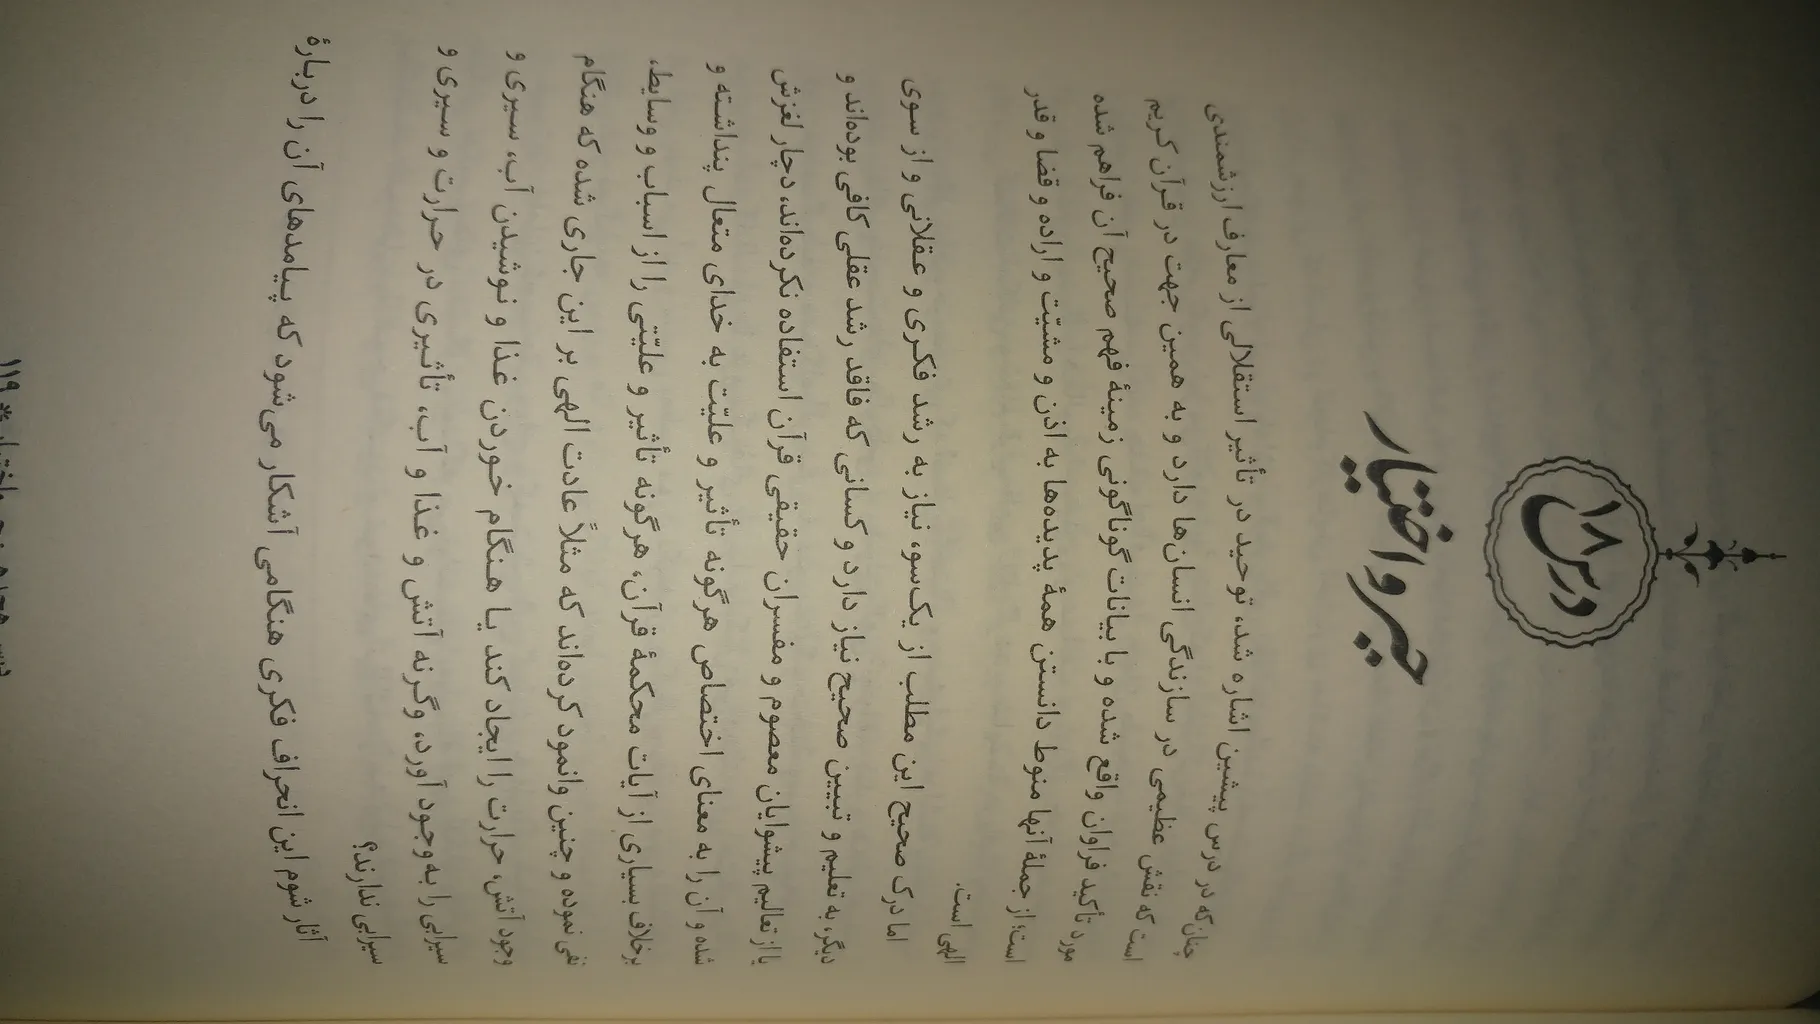 درس ۱۸
جبر و اختیار
چنان‌که در درس پیشین اشاره شد، توحید در تأثیر استقلالی از معارف ارزشمندی
است که نقش عظیمی در سازندگی انسان‌ها دارد و به همین جهت در قرآن کریم
مورد تأکید فراوان واقع شده و با بیانات گوناگونی زمینهٔ فهم صحیح آن فراهم شده
است؛ از جملهٔ آنها منوط دانستن همهٔ پدیده‌ها به اذن و مشیّت و اراده و قضا و قدر
الهی است.
اما درک صحیح این مطلب از یک‌سو، نیاز به رشد فکری و عقلانی و از سوی
دیگر، به تعلیم و تبیین صحیح نیاز دارد و کسانی که فاقد رشد عقلی کافی بوده‌اند و
یا از تعالیم پیشوایان معصوم و مفسران حقیقی قرآن استفاده نکرده‌اند، دچار لغزش
شده و آن را به معنای اختصاص هرگونه تأثیر و علیّت به خدای متعال پنداشته و
برخلاف بسیاری از آیات محکمهٔ قرآن، هرگونه تأثیر و علیّتی را از اسباب و وسایط،
نفی نموده و چنین وانمود کرده‌اند که مثلاً عادت الهی بر این جاری شده که هنگام
وجود آتش، حرارت را ایجاد کند یا هنگام خوردن غذا و نوشیدن آب، سیری و
سیرابی را به وجود آورد، وگرنه آتش و غذا و آب، تأثیری در حرارت و سیری و
سیرابی ندارند؟
آثار شوم این انحراف فکری هنگامی آشکار می‌شود که پیامدهای آن را دربارهٔ
۱۱۹